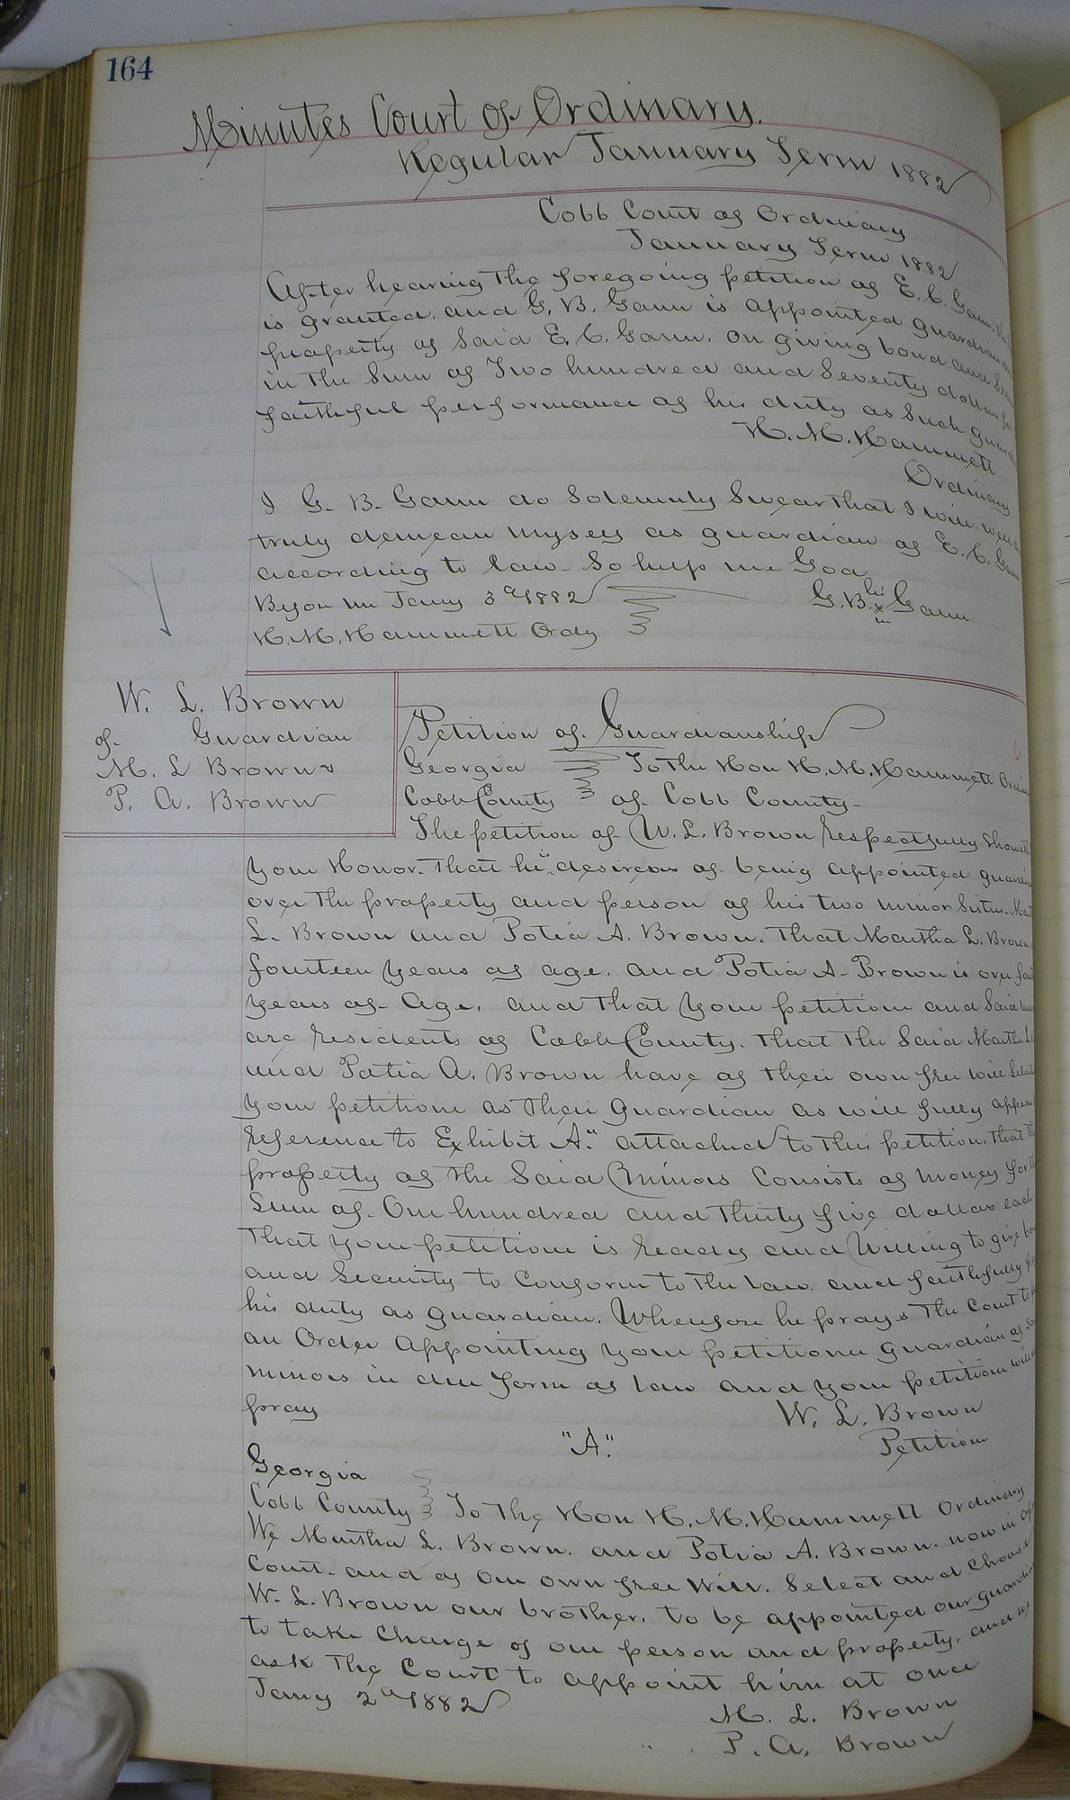 164
Minutes Court of Ordinary.
Regular January Term 1882
Cobb Court of Ordinary
January Term 1882
After hearing the foregoing petition of E. C. Gann.
is granted. and G. B. Gann is appointed guardian
property of Said E. C. Gann. on giving bond and
in the Sum of Two hundred and Seventy dollars for
faithful performance of his duty as Such
H. M. Hammett
Ordinary
I G. B. Gann do Solemnly Swear that I will well
truly demean myself as guardian of E. C. Gann
according to law. So help me God
Before me Jany 3d 1882
G. B. his x m Gann
H. M. Hammett Ordy
W. L. Brown
of Guardian
M. L Brown &
P. A. Brown
Petition of Guardianship
Georgia To the Hon H. M. Hammett
Cobb County of Cobb County
The petition of W. L. Brown respectfully
your Honor. that he is desireous of being appointed
over the property and person of his two minor Sisters.
L. Brown and Potia A. Brown. that Martha L. Brown
fourteen years of age. and Potia A. Brown is over
years of age. and that your petitioner and Said
are residents of Cobb County. that the Said Martha L
and Potia A. Brown have of their own free will
your petitioner as their Guardian as will fully
reference to Exhibit "A." attached to this petition, that
property of the Said minors Consists of money for
Sum of One hundred and thirty five dollars each
that your petitioner is ready and willing to give
and Security to Conform to the law. and faithfully
his duty as guardian. Wherefore he prays the Court to
an Order appointing your petitioner guardian of
minors in due form of law and your petitioner will
pray
W. L. Brown
Petitioner
"A."
Georgia
Cobb County To the Hon H. M. Hammett Ordinary
We Martha L. Brown. and Potia A. Brown. now in
Court. and of our own free will. Select and Choose
W. L. Brown our brother. to be appointed our guardian
to take Charge of our person and property. and we
ask the Court to appoint him at once
Jany 2d 1882
M. L. Brown
P. A. Brown